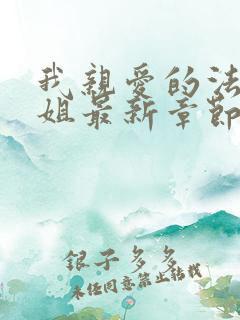 我親愛的法
姐最新章節
銀子多多
未任同意禁止转载